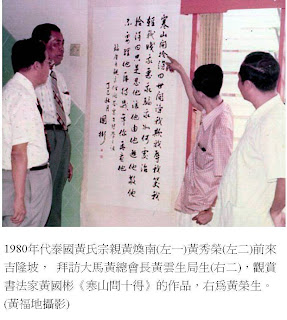 寒山問拾得曰世間謗我欺我辱我笑我
輕我賤我惡我騙我如何處治
拾得曰只是忍他讓他由他避他耐他敬他
不要理他再待幾年你且看他
國彬
1980年代泰國黃氏宗親黃煥南(左一)黃秀榮(左二)前來
吉隆坡， 拜訪大馬黃總會長黃雲生局生(右二)，觀賞
書法家黃國彬《寒山問十得》的作品，右爲黃榮生。
(黃福地攝影)